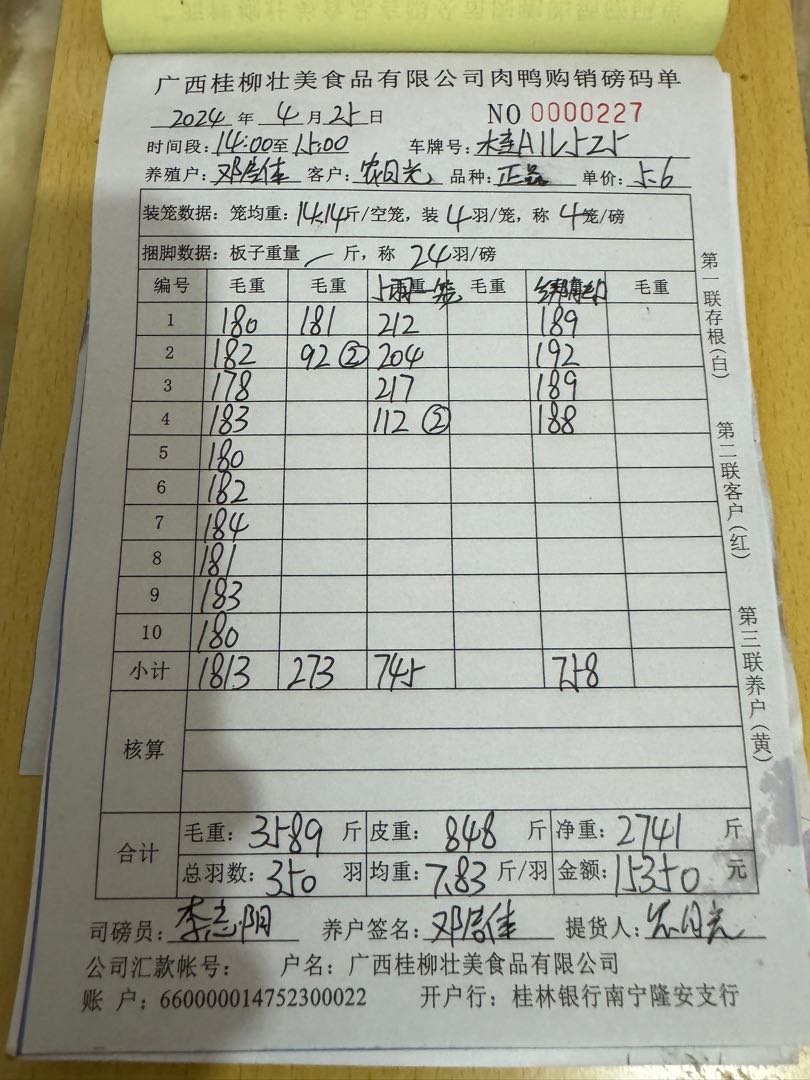 广西桂柳壮美食品有限公司肉鸭购销磅码单
2024 年 4 月 25 日 NO 0000227
时间段: 14:00至 15:00 车牌号:
养殖户: 客户: 农日光 品种: 正品 单价: 5.6
装笼数据: 笼均重: 14.14斤/空笼, 装 4 羽/笼, 称 4 笼/磅
捆脚数据: 板子重量 斤, 称 24 羽/磅
编号 毛重 毛重 5羽一笼 毛重
1 180 181 212 189
2 182 92 ② 204 192
3 178 217 189
4 183 112 ② 188
5 180
6 182
7 184
8 181
9 183
10 180
小计 1813 273 745 758
核算
合计 毛重: 3589 斤 皮重: 848 斤 净重: 2741 斤
总羽数: 350 羽 均重: 7.83 斤/羽 金额: 15350 元
司磅员: 李志阴 养户签名: 提货人: 农日光
公司汇款帐号: 户名: 广西桂柳壮美食品有限公司
账 户: 660000014752300022 开户行: 桂林银行南宁隆安支行
第一联存根(白)
第二联客户(红)
第三联养户(黄)